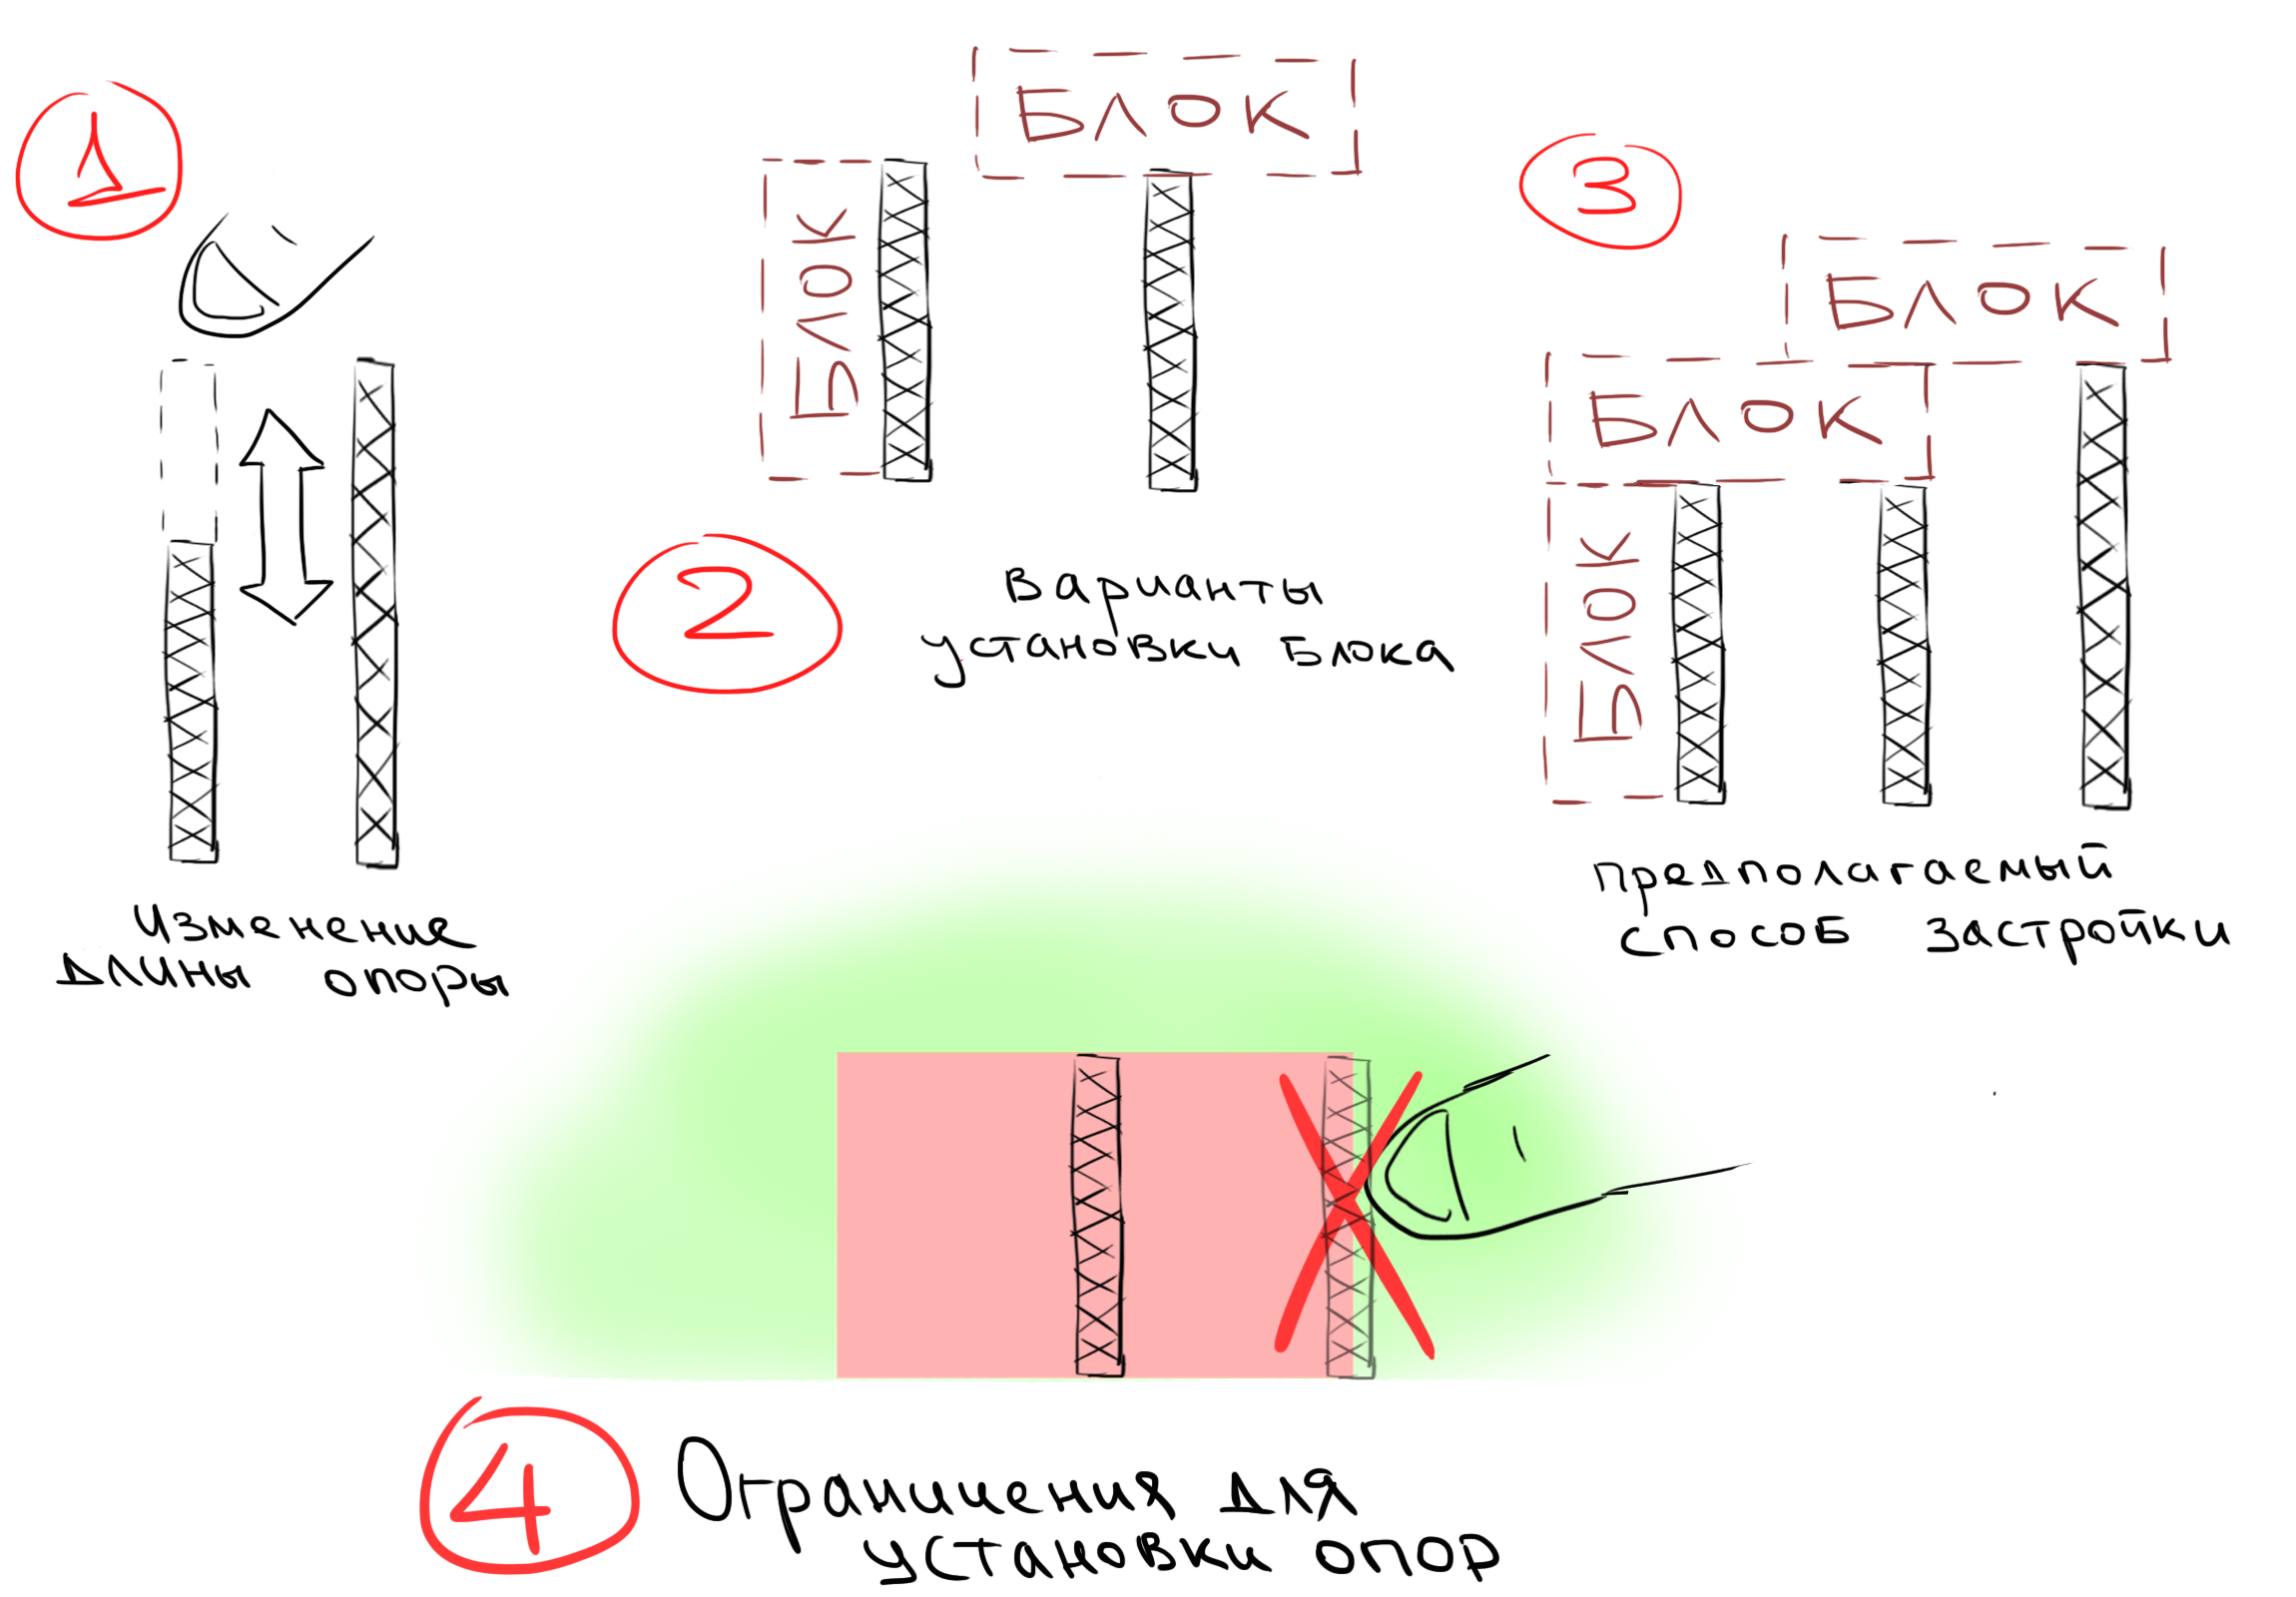 1
Изменение
длины опоры
БЛОК
БЛОК
2
Варианты
установки блока
3
БЛОК
БЛОК
БЛОК
предполагаемый
способ застройки
4
Ограничения для
установки опор